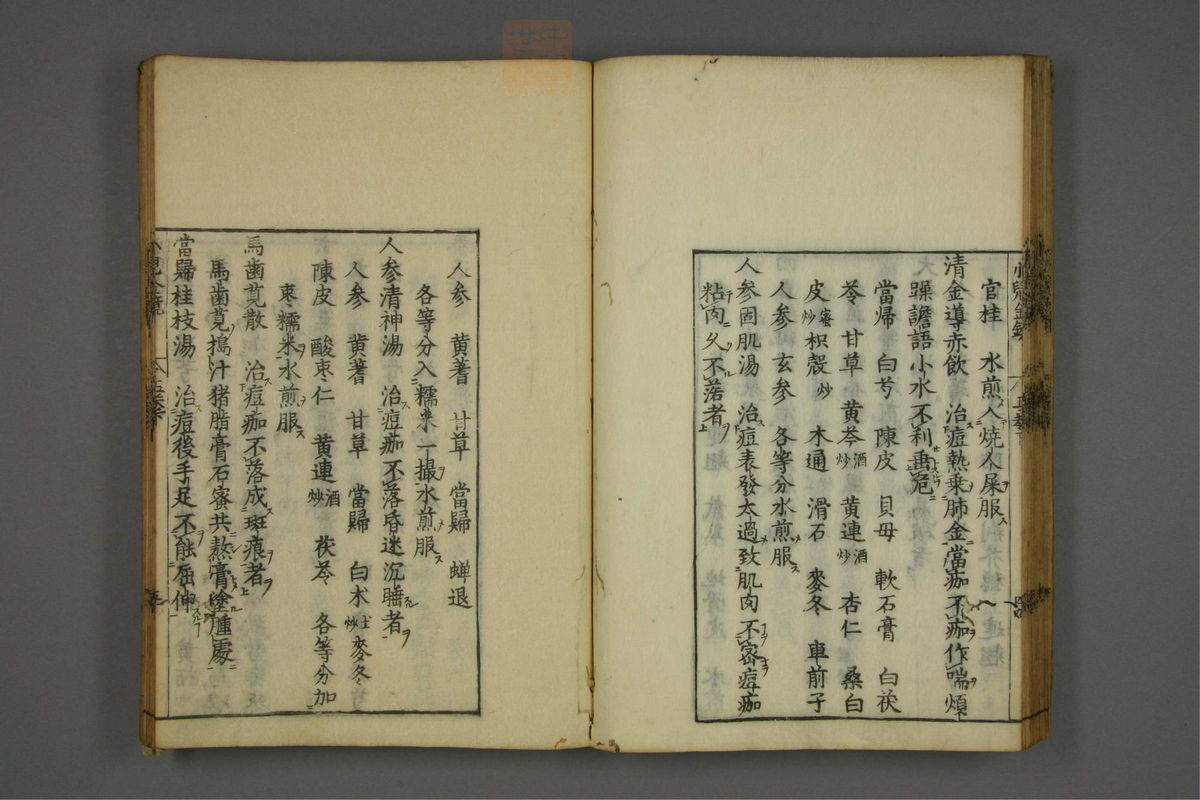 官桂　水煎入燒人屎服
清金導赤飲　治痘熱乗肺金當痂不痂作喘煩
躁譫語小水不利垂危
當帰　白芍　陳皮　貝母　軟石膏　白茯
苓　甘草　黄芩酒炒　黄連酒炒　杏仁　桑白
皮蜜炒　枳殻炒　木通　滑石　麥冬　車前子
人参　玄参　各等分水煎服
人参固肌湯　治痘表發太過致肌肉不密痘痂
粘肉久不落者
人参　黄蓍　甘草　當歸　蝉退
各等分入糯米一撮水煎服
人参清神湯　治痘痂不落昏迷沉睡者
人参　黄蓍　甘草　當歸　白朮土炒　麥冬
陳皮　酸枣仁　黄連酒炒　茯苓　各等分加
枣糯米水煎服
馬齒莧散　治痘痂不落成斑痕者
馬齒莧搗汁猪脂膏石蜜共熬膏塗腫處
當歸桂枝湯　治痘後手足不能屈伸